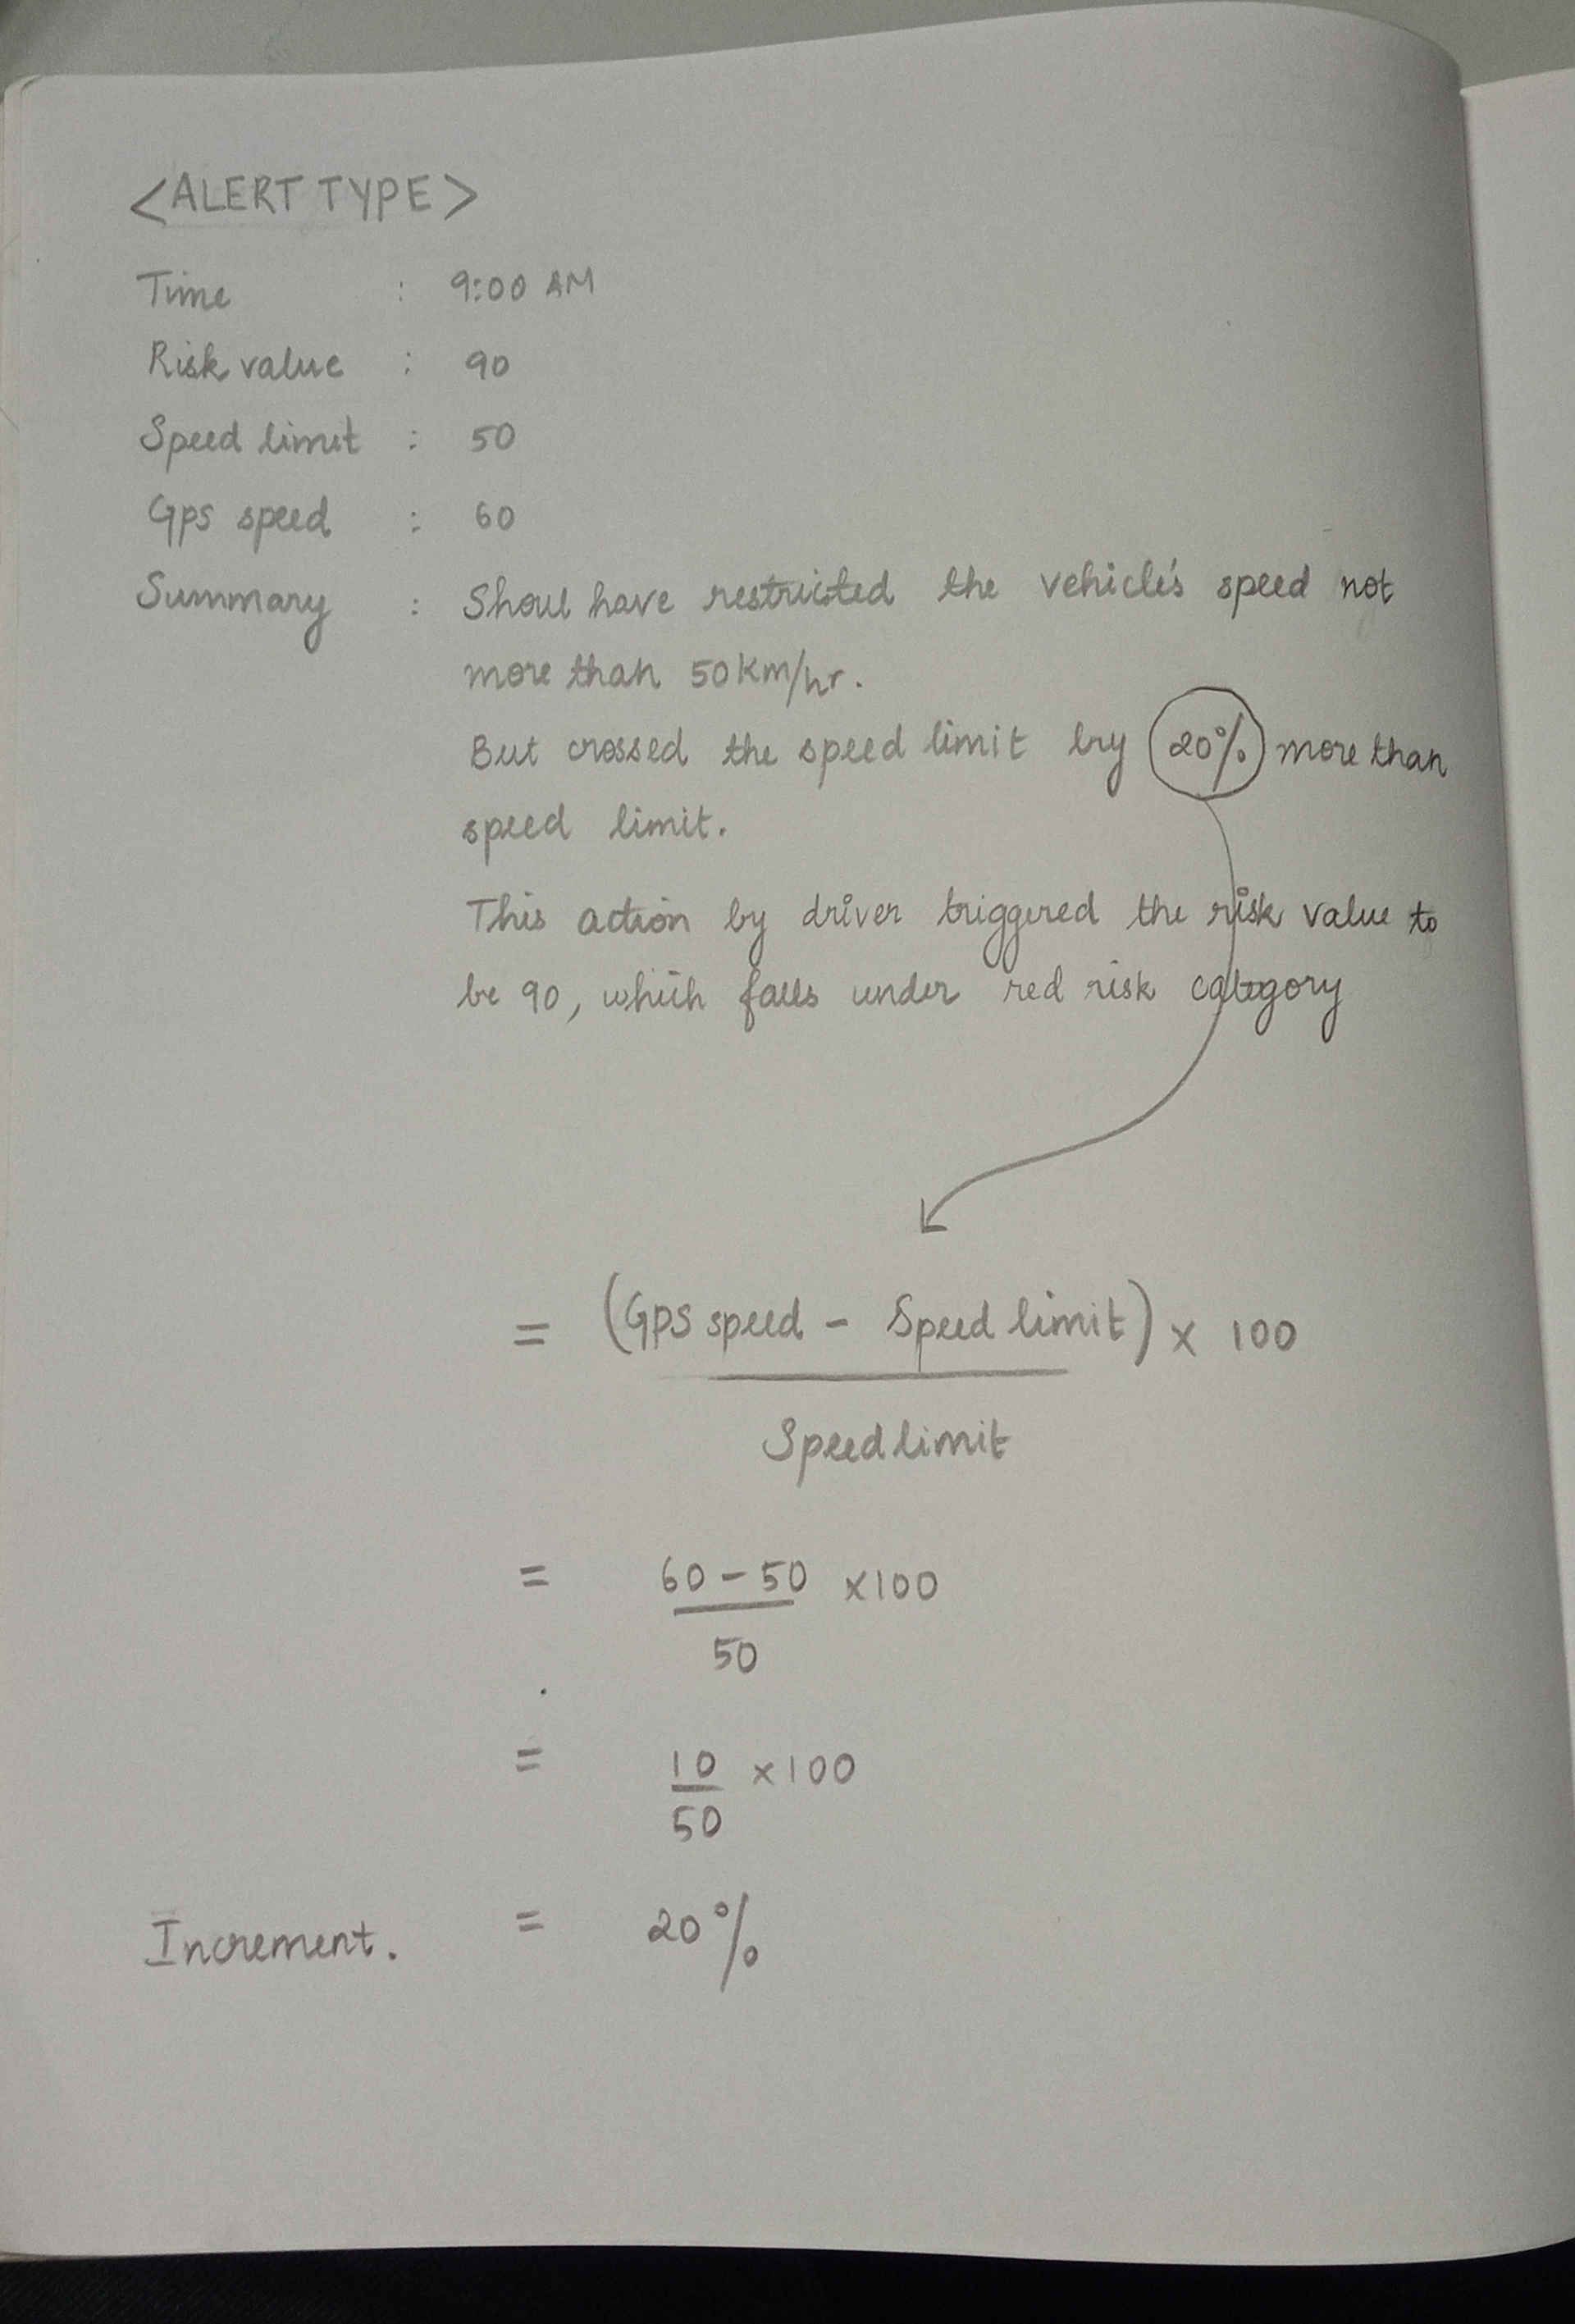 <ALERT TYPE>
Time : 9:00 AM
Risk value : 90
Speed limit : 50
Gps speed : 60
Summary : Shoul have restricted the vehicle's speed not
more than 50 km/hr.
But crossed the speed limit by 20% more than
speed limit.
This action by driver triggered the risk value to
be 90, which falls under red risk category
= (GPS speed - Speed limit) x 100
Speed limit
= 60 - 50 x 100
50
= 10 x 100
50
Increment. = 20%